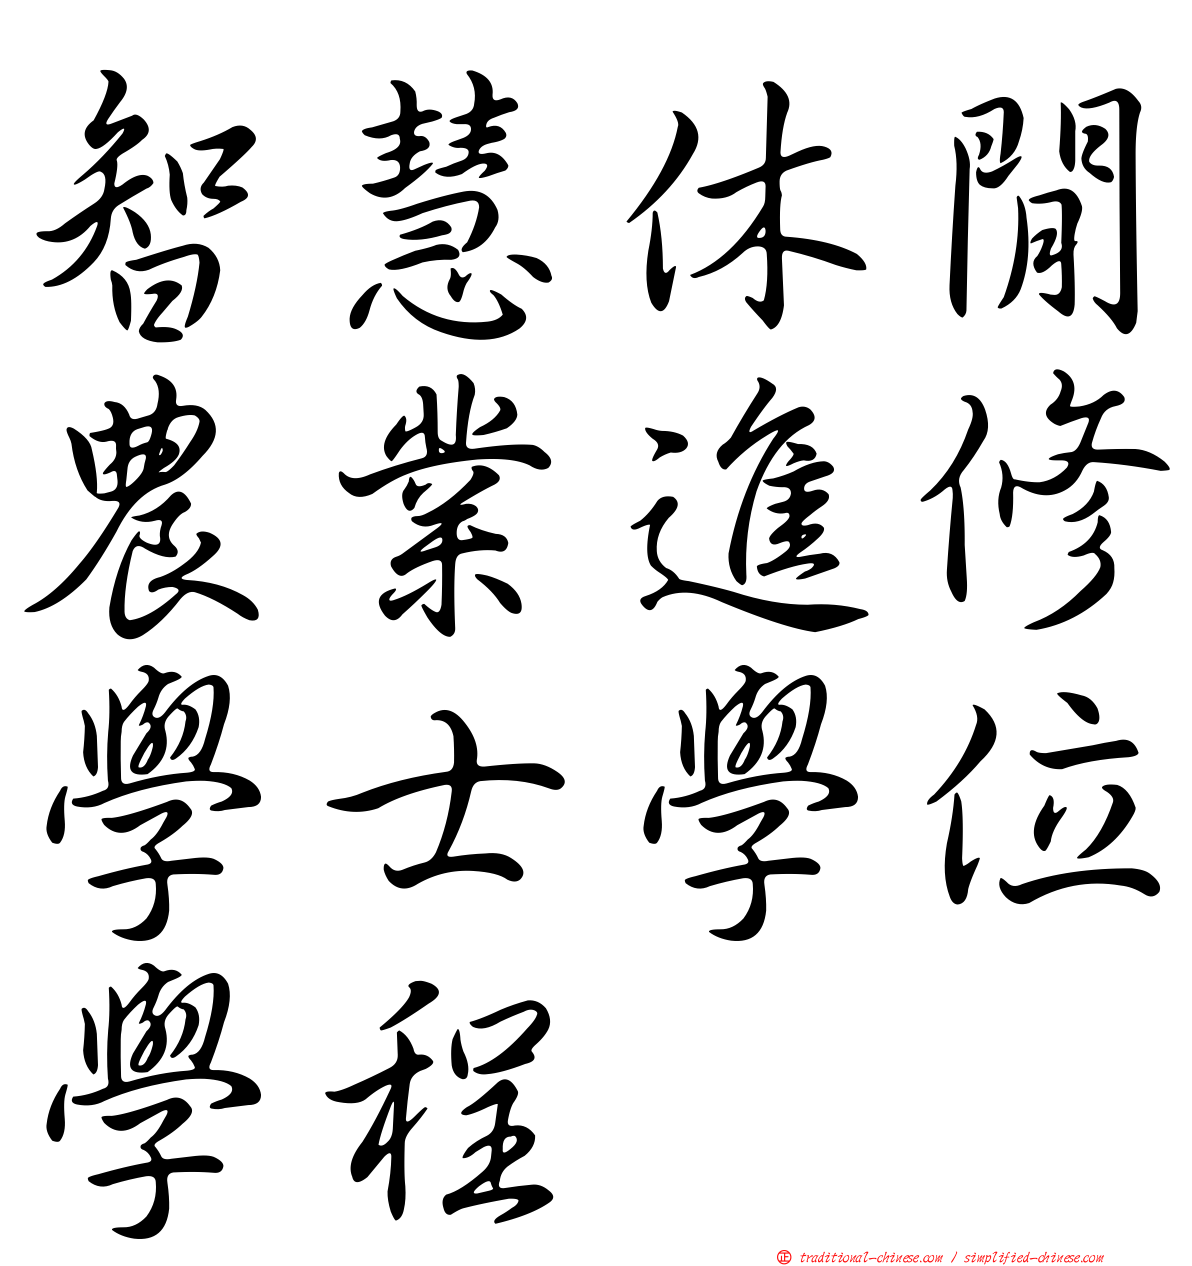 智慧休閒
農業進修
學士學位
學程
㊣ traditional-chinese.com / simplified-chinese.com